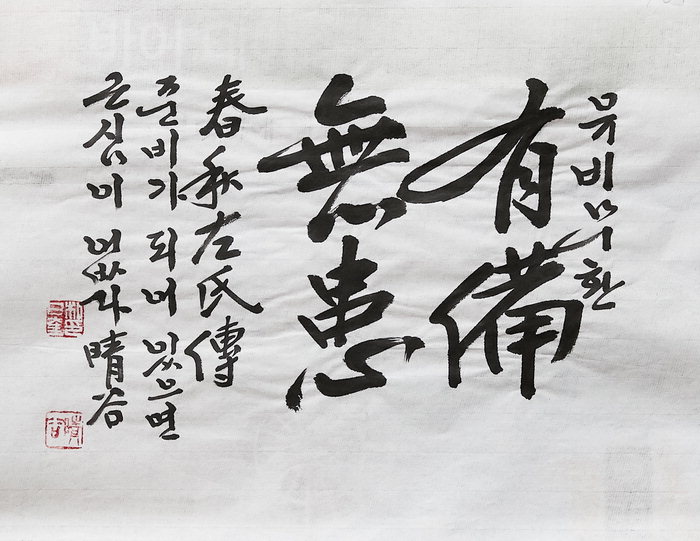 유비무환
有備
無患
春秋左氏傳
준비가 되어 있으면
근심이 없다 晴谷